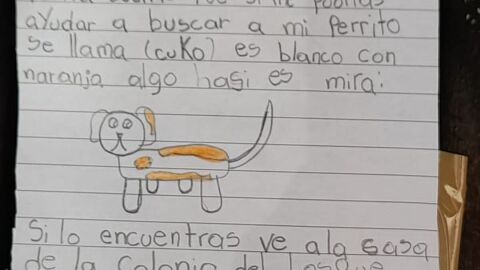 ayudar a buscar a mi perrito
se llama (cuko) es blanco con
naranja algo hasi es mira:
Si lo encuentras ve ala casa
de la Colonia del